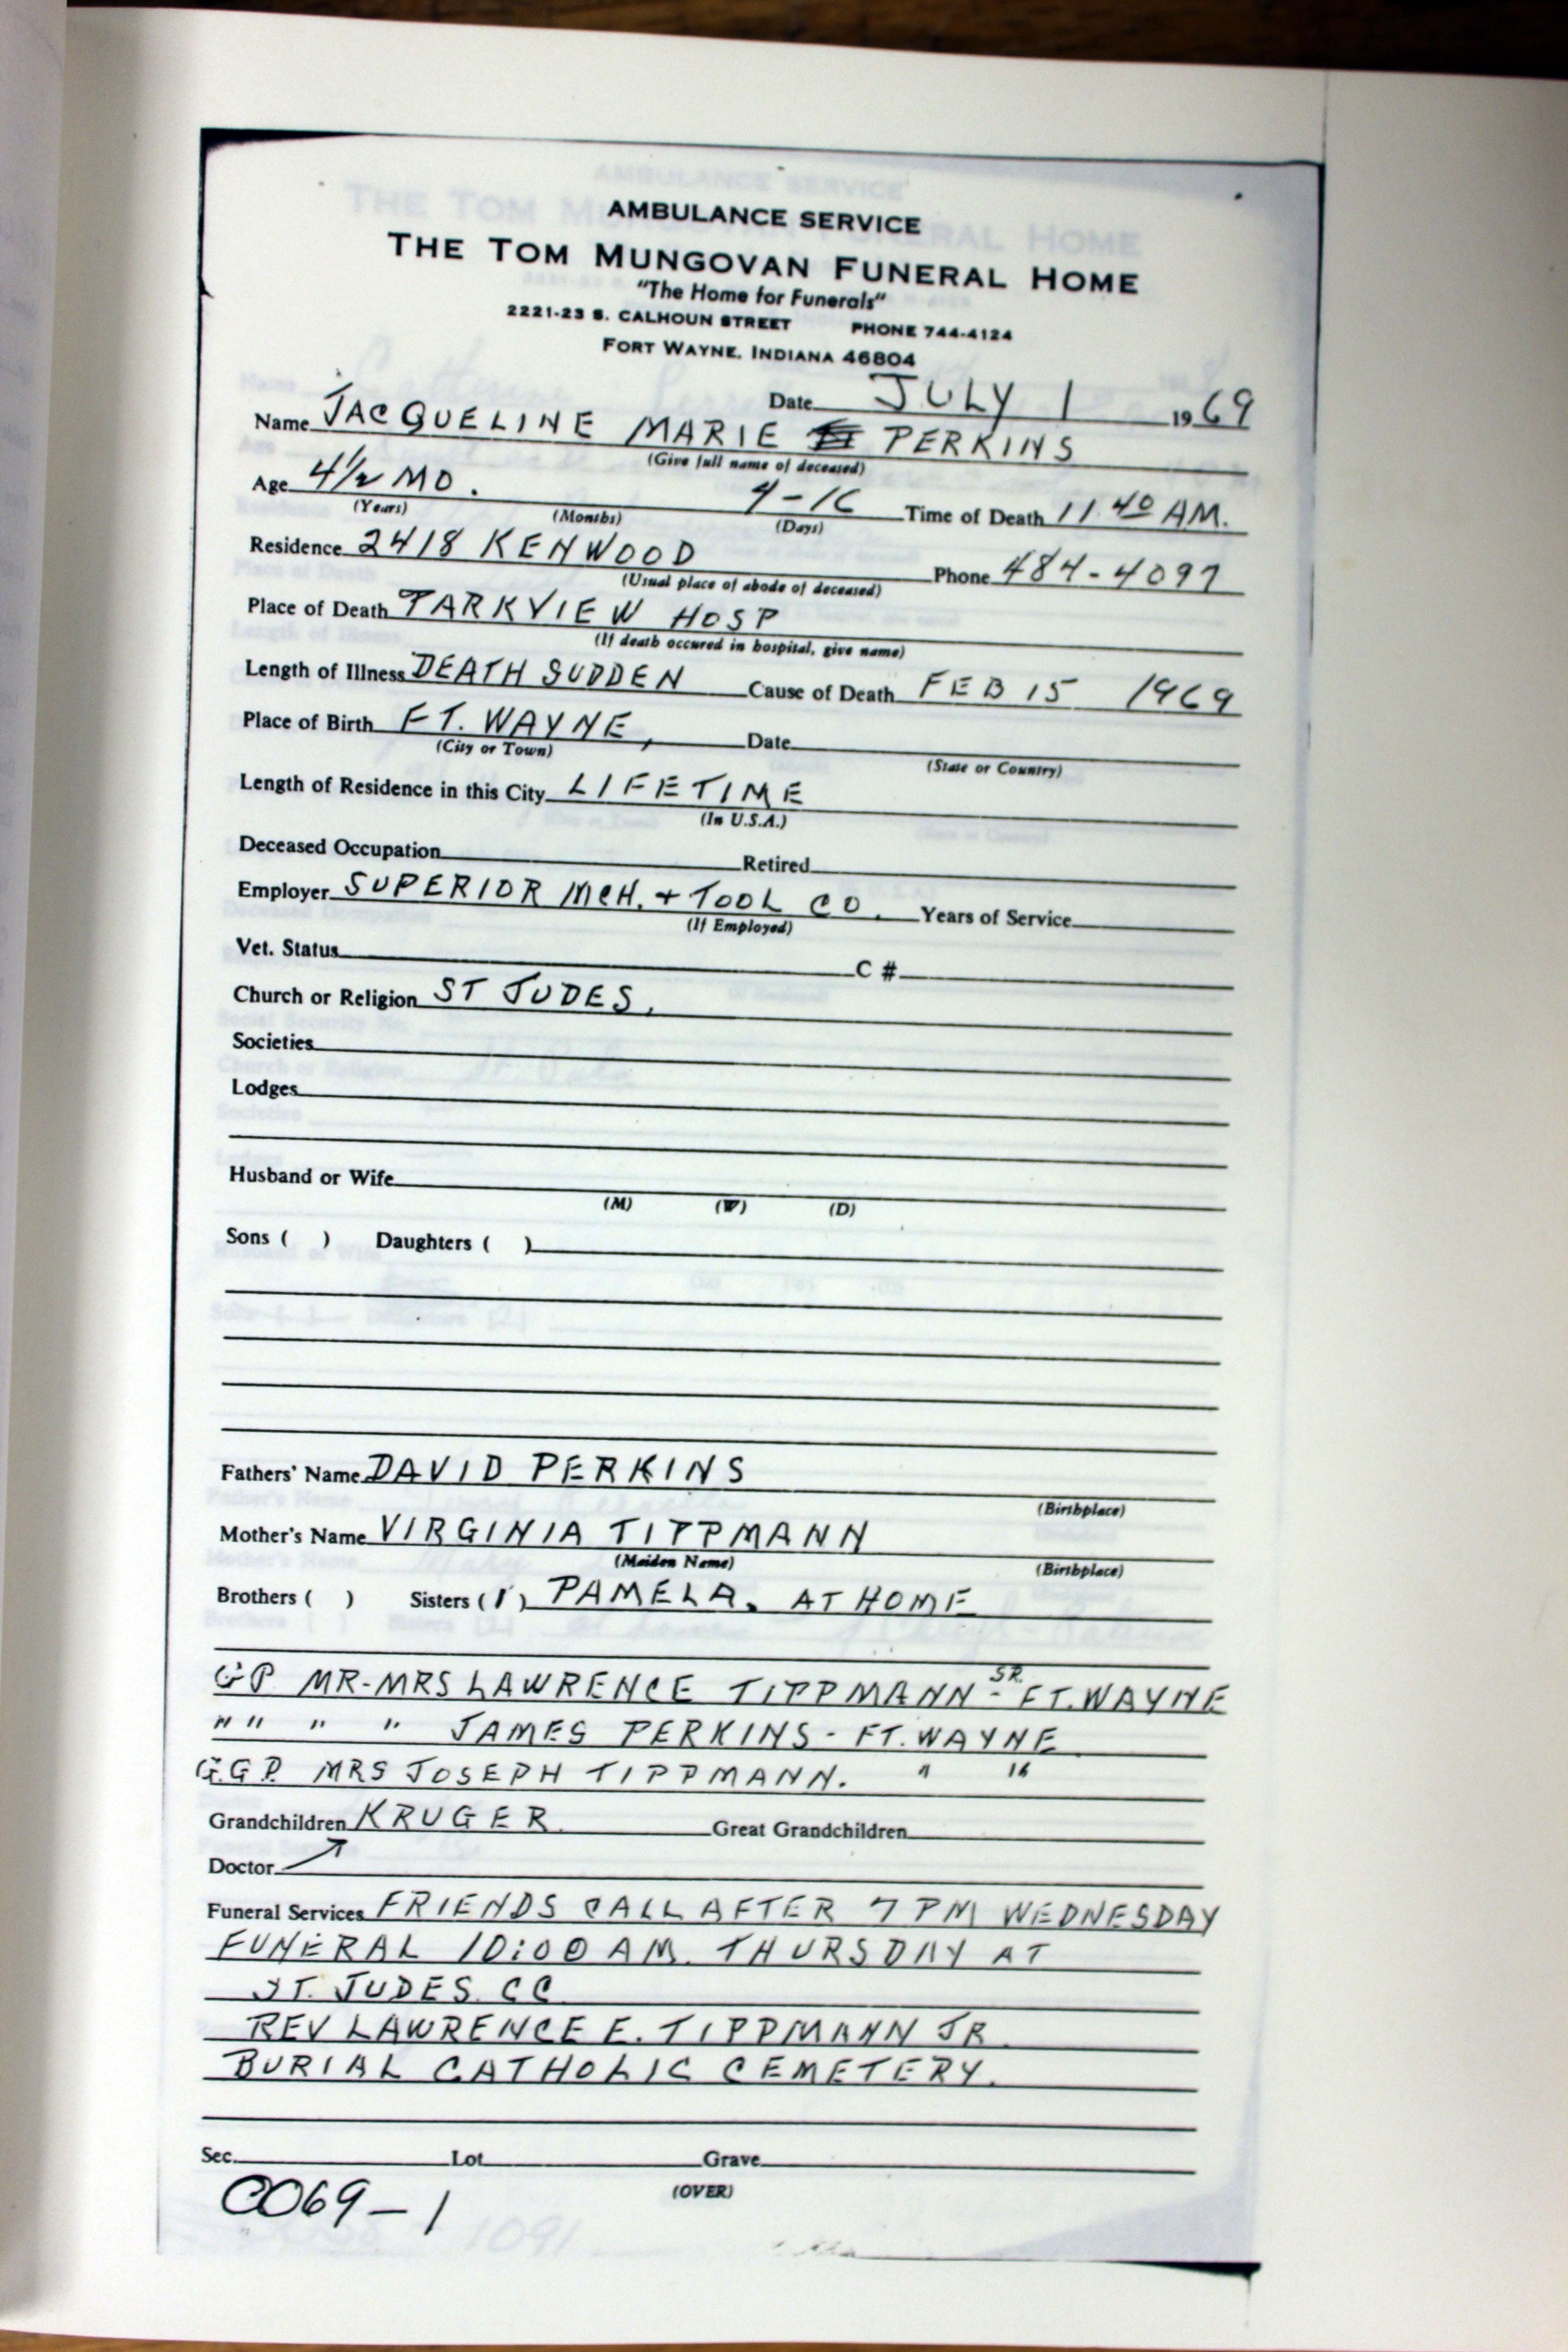 AMBULANCE SERVICE
THE TOM MUNGOVAN FUNERAL HOME
"The Home for Funerals"
2221-23 S. CALHOUN STREET PHONE 744-4124
FORT WAYNE, INDIANA 46804
Date JULY 1 1969
Name JACQUELINE MARIE PERKINS
(Give full name of deceased)
Age 4½ MO. 4-16 Time of Death 11:40 AM.
(Years) (Months) (Days)
Residence 2418 KENWOOD Phone 484-4097
(Usual place of abode of deceased)
Place of Death PARKVIEW HOSP
(If death occured in hospital, give name)
Length of Illness DEATH SUDDEN Cause of Death FEB 15 1969
Place of Birth FT. WAYNE, Date
(City or Town) (State or Country)
Length of Residence in this City LIFETIME
(In U.S.A.)
Deceased Occupation Retired
Employer SUPERIOR MCH. + TOOL CO. Years of Service
(If Employed)
Vet. Status C #
Church or Religion ST JUDES.
Societies
Lodges
Husband or Wife
(M) (W) (D)
Sons ( ) Daughters ( )
Fathers' Name DAVID PERKINS
(Birthplace)
Mother's Name VIRGINIA TIPPMANN
(Maiden Name) (Birthplace)
Brothers ( ) Sisters (1) PAMELA. AT HOME
GP MR-MRS LAWRENCE TIPPMANN SR - FT. WAYNE
" " " " JAMES PERKINS - FT. WAYNE
G.G.P. MRS JOSEPH TIPPMANN. " "
Grandchildren KRUGER Great Grandchildren
Doctor
Funeral Services FRIENDS CALL AFTER 7 PM WEDNESDAY
FUNERAL 10:00 AM. THURSDAY AT
ST. JUDES. CC
REV LAWRENCE E. TIPPMANN JR.
BURIAL CATHOLIC CEMETERY.
Sec. Lot Grave
(OVER)
CO69-1